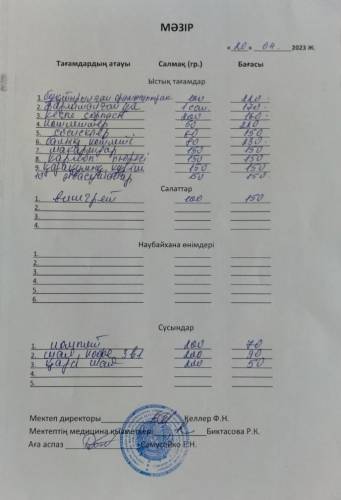 МӘЗІР
« 20 » 04 2023 Ж.
Тағамдардың атауы Салмақ (гр.) Бағасы
Ыстық тағамдар
1. 200 220
2. 1 170
3. кеспе сорпасы 200 160
4. котлеттер 60 220
5. сосискалар 150
6. балық котлеті 230
7. макарондар 150 150
8. картоп пюресі 150 150
9. 150 150
10. 150 150
Салаттар
1. винегрет 100 150
2.
3.
4.
Наубайхана өнімдері
1.
2.
3.
4.
5.
6.
Сусындар
1. компот 200 70
2. шай, кофе 3в1 200 90
3. шай 200 50
4.
5.
Мектеп директоры Келлер Ф.Н.
Мектептің медицина қызметкері Биктасова Р.К.
Аға аспаз Самусейко Е.Н.